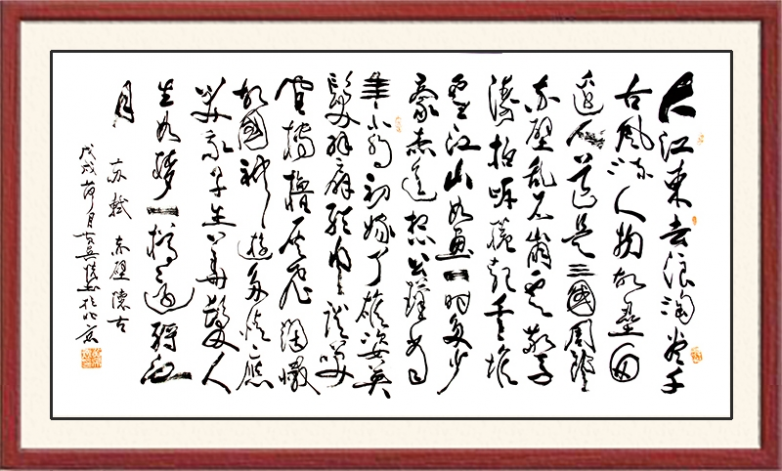 大江東去浪淘尽千
古風流人物故壘西
邊人道是三國周郎
赤壁乱石崩雲驚
濤拍岸捲起千堆
雪江山如画一时多少
豪杰遥想公瑾当
年小乔初嫁了雄姿英
發羽扇綸巾談笑
间樯橹灰飞烟灭
故國神遊多情應
笑我早生華髮人
生如夢一樽還酹江
月
苏軾 赤壁懷古
戊戌荷月 於北京